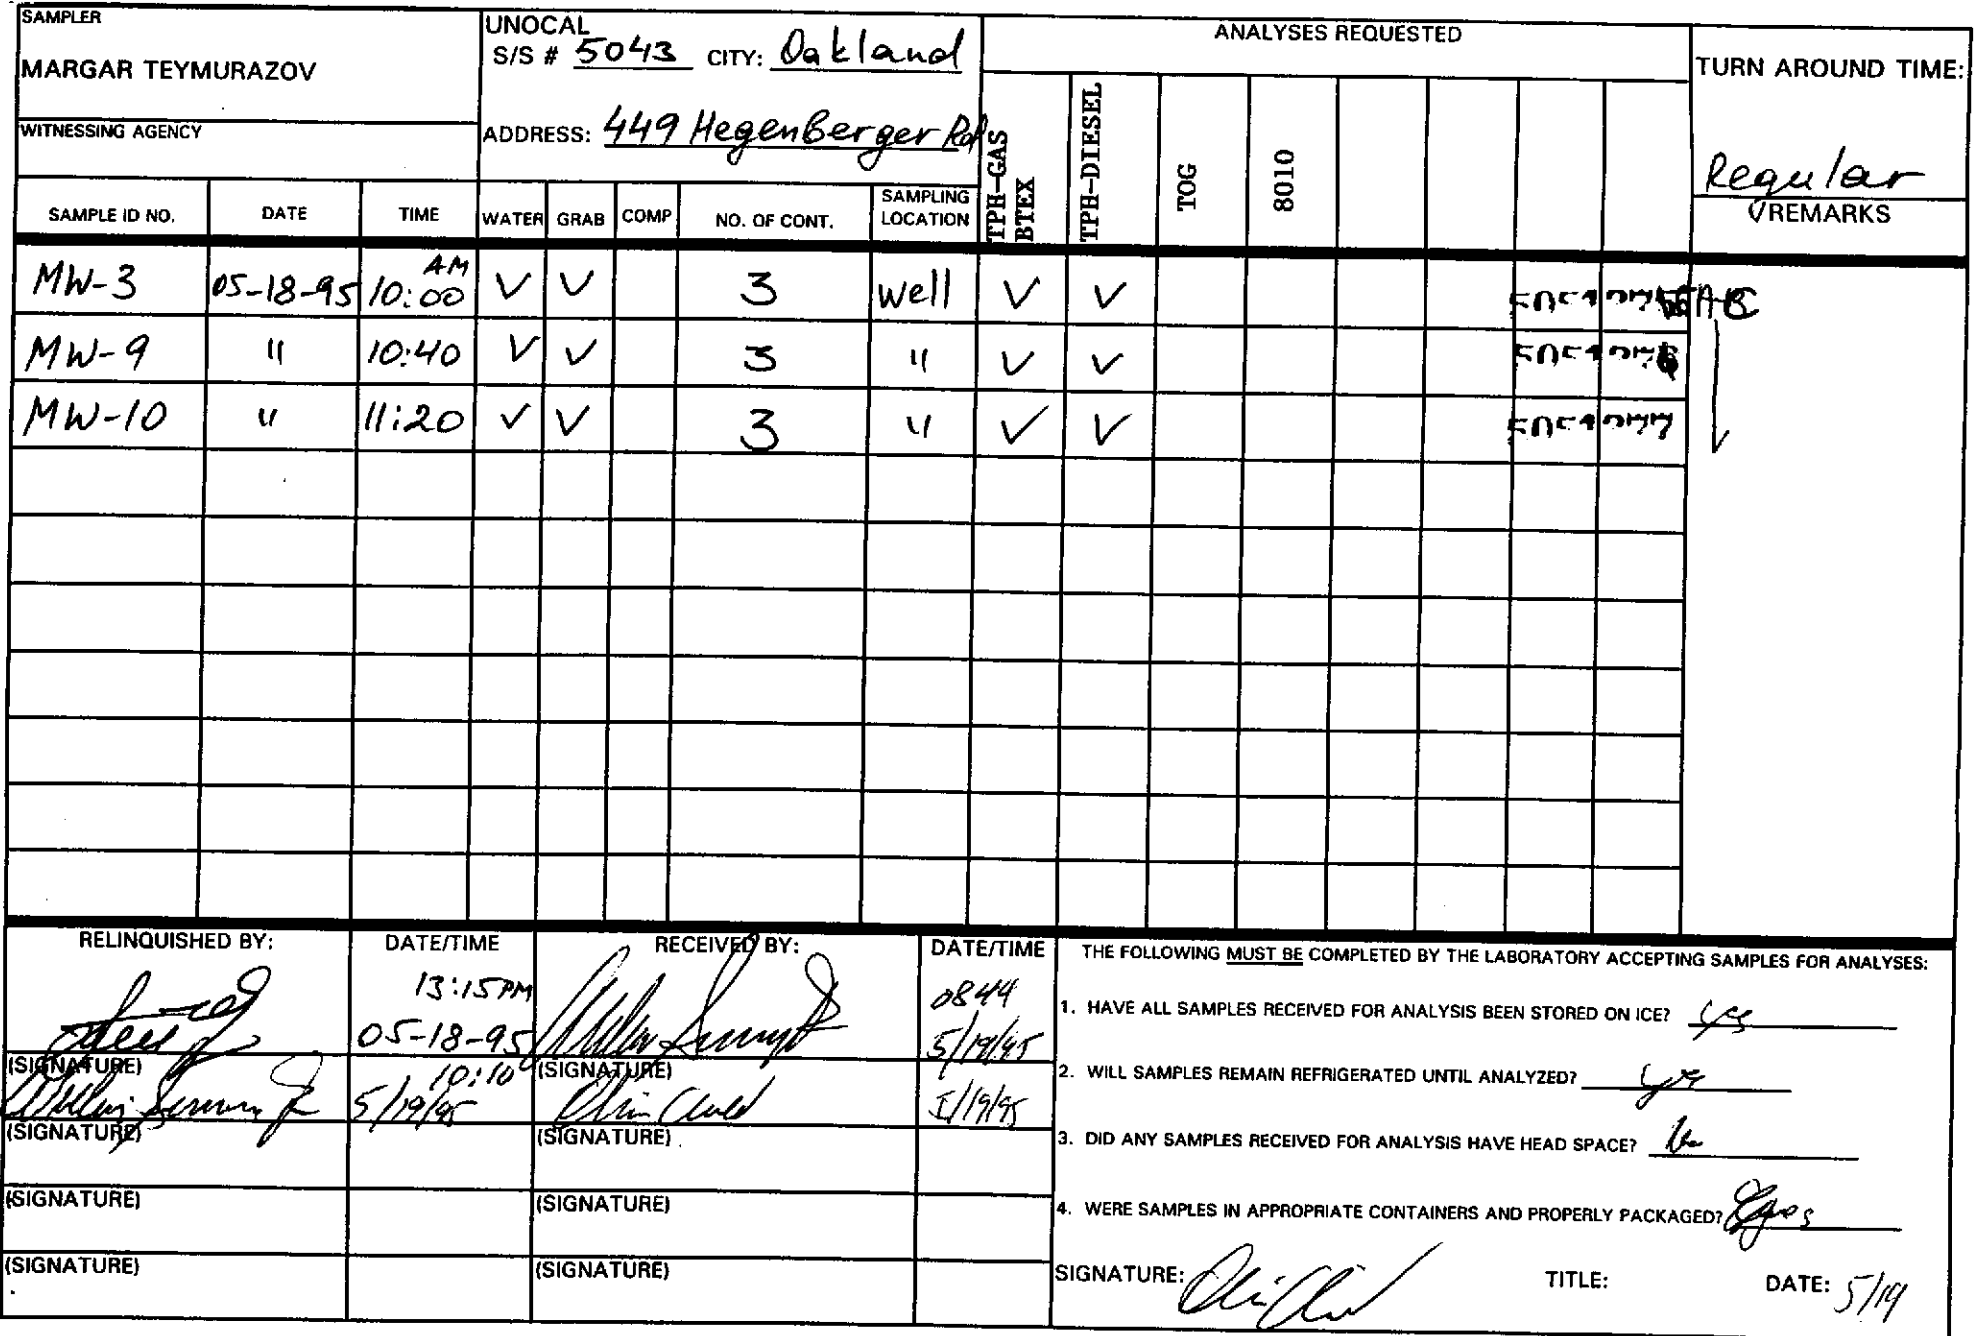 SAMPLER
MARGAR TEYMURAZOV
WITNESSING AGENCY
UNOCAL
S/S # 5043 CITY: Oakland
ADDRESS: 449 Hegenberger Rd
ANALYSES REQUESTED
TURN AROUND TIME:
Regular
REMARKS
SAMPLE ID NO. DATE TIME WATER GRAB COMP NO. OF CONT. SAMPLING LOCATION TPH-GAS BTEX TPH-DIESEL TOG 8010
MW-3 05-18-95 10:00 AM ✓ ✓ 3 well ✓ ✓
MW-9 " 10:40 ✓ ✓ 3 " ✓ ✓
MW-10 " 11:20 ✓ ✓ 3 " ✓ ✓ 5051277
RELINQUISHED BY: DATE/TIME RECEIVED BY: DATE/TIME
13:15 PM 0844
05-18-95 5/19/95
(SIGNATURE) (SIGNATURE)
10:10
5/19/95 5/19/95
(SIGNATURE) (SIGNATURE)
(SIGNATURE) (SIGNATURE)
(SIGNATURE) (SIGNATURE)
THE FOLLOWING MUST BE COMPLETED BY THE LABORATORY ACCEPTING SAMPLES FOR ANALYSES:
1. HAVE ALL SAMPLES RECEIVED FOR ANALYSIS BEEN STORED ON ICE? yes
2. WILL SAMPLES REMAIN REFRIGERATED UNTIL ANALYZED? yes
3. DID ANY SAMPLES RECEIVED FOR ANALYSIS HAVE HEAD SPACE? no
4. WERE SAMPLES IN APPROPRIATE CONTAINERS AND PROPERLY PACKAGED? yes
SIGNATURE: TITLE: DATE: 5/19